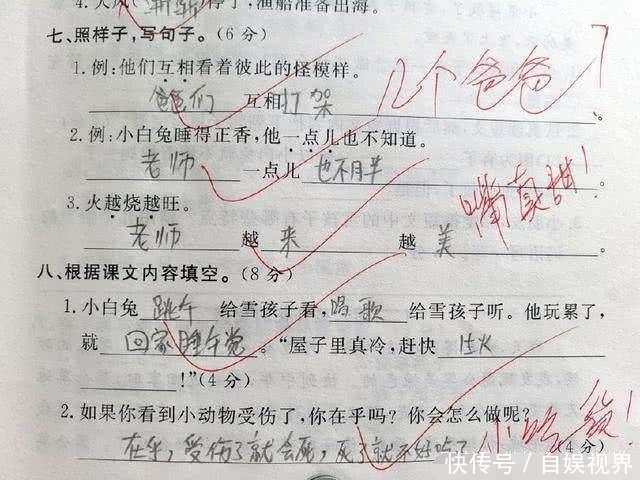 停了,渔船准备出海。
七、照样子,写句子。(6分)
1.例:他们互相看着彼此的怪模样。
爸爸们 互相打架。
几个爸爸?
2.例:小白兔睡得正香,他一点儿也不知道。
老师 一点儿 也不胖。
嘴真甜!
3.火越烧越旺。
老师 越 来 越 美 。
八、根据课文内容填空。(8分)
1.小白兔 跳 给雪孩子看, 唱歌 给雪孩子听。他玩累了,
就 回家睡午觉 。“屋子里真冷,赶快
!”(4分)
2.如果你看到小动物受伤了,你在乎吗?你会怎么做呢?
在乎,受伤了就会死,死了就不好吃了 (4分)
小吃货!
快传号 / 自娱视界